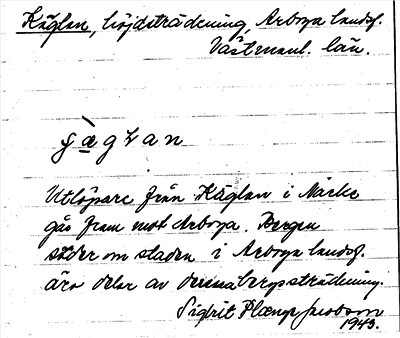 Käglan, höjdsträckning, Arboga landsf.
Västmanl. län.
Utlöpare från Käglan i Närke
går fram mot Arboga. Bergen
söder om staden i Arboga landsf.
äro delar av denna bergsträckning.
Sigbrit Plænge Jacobson
1943.